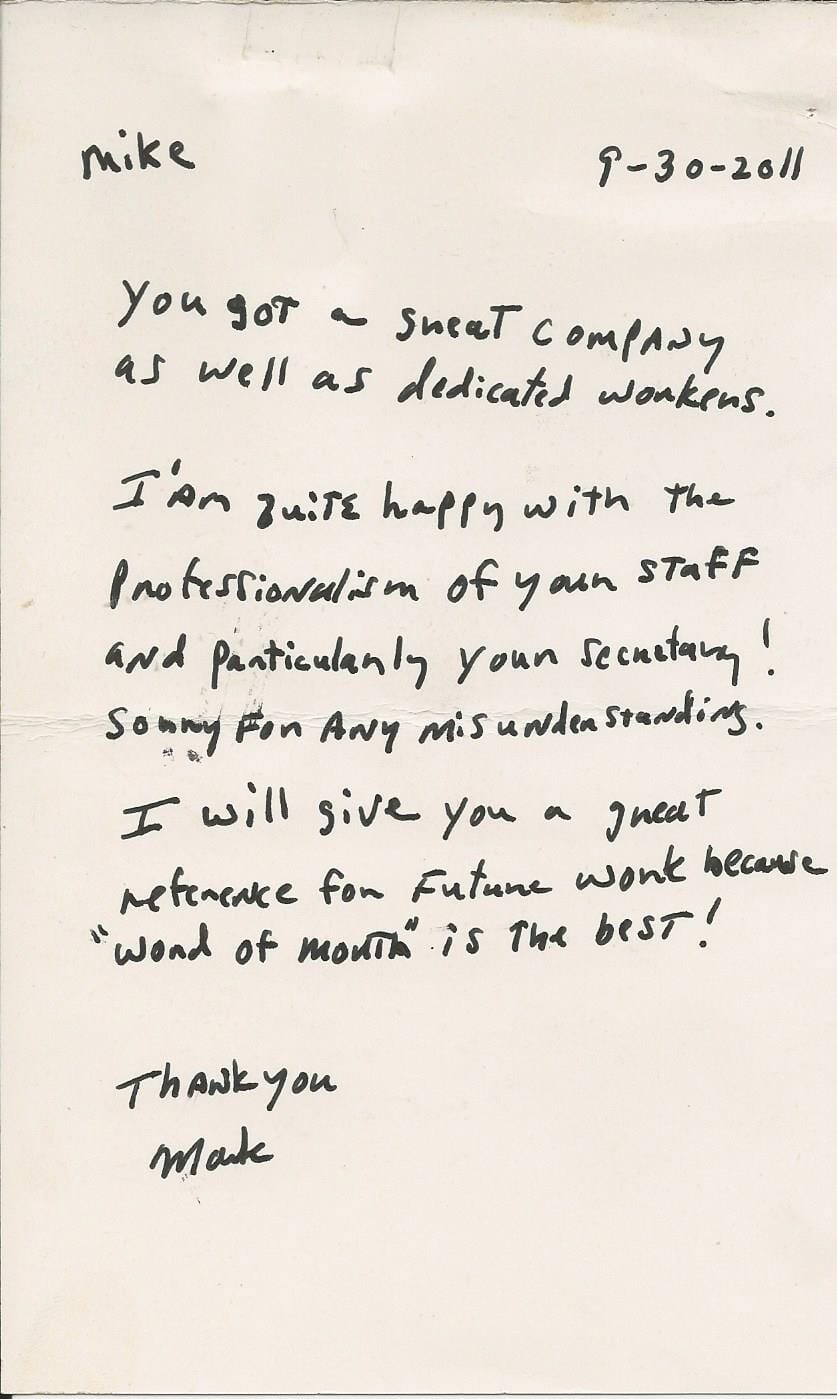 Mike
9-30-2011
You got a great company
as well as dedicated workers.
I'Am quite happy with the
Professionalism of your staff
and particularly your secretary!
Sorry For Any misunderstanding.
I will give you a great
reference for Future work because
"word of mouth" is the best!
Thank you
Mark